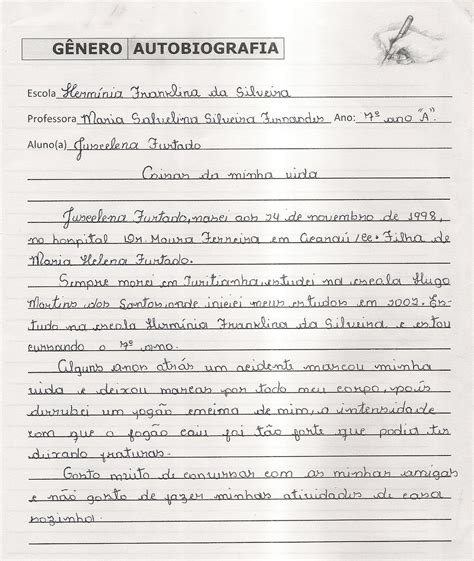 GÊNERO AUTOBIOGRAFIA
Escola Hermínia Franklina da Silveira
Professora Maria Silveira Fernandes Ano: 7º ano "A".
Aluno(a) Juscelena Furtado
Coisas da minha vida
Juscelena Furtado, nasci aos 24 de novembro de 1998,
no hospital Dr. Moura Ferreira em Acaraú/ce. Filha de
Maria Helena Furtado.
Sempre morei em Juritianha, estudei na escola Hugo
Martins dos Santos, onde iniciei meus estudos em 2002. Es-
tudo na escola Hermínia Franklina da Silveira e estou
cursando o 7º ano.
Alguns anos atrás um acidente marcou minha
vida e deixou marcas por todo meu corpo, pois
derrubei um fogão encima de mim, a intensidade
com que a fogão caiu foi tão forte que podia ter
deixado fraturas.
Gosto muito de conversar com as minhas amigas
e não gosto de fazer minhas atividades de casa
sozinha.